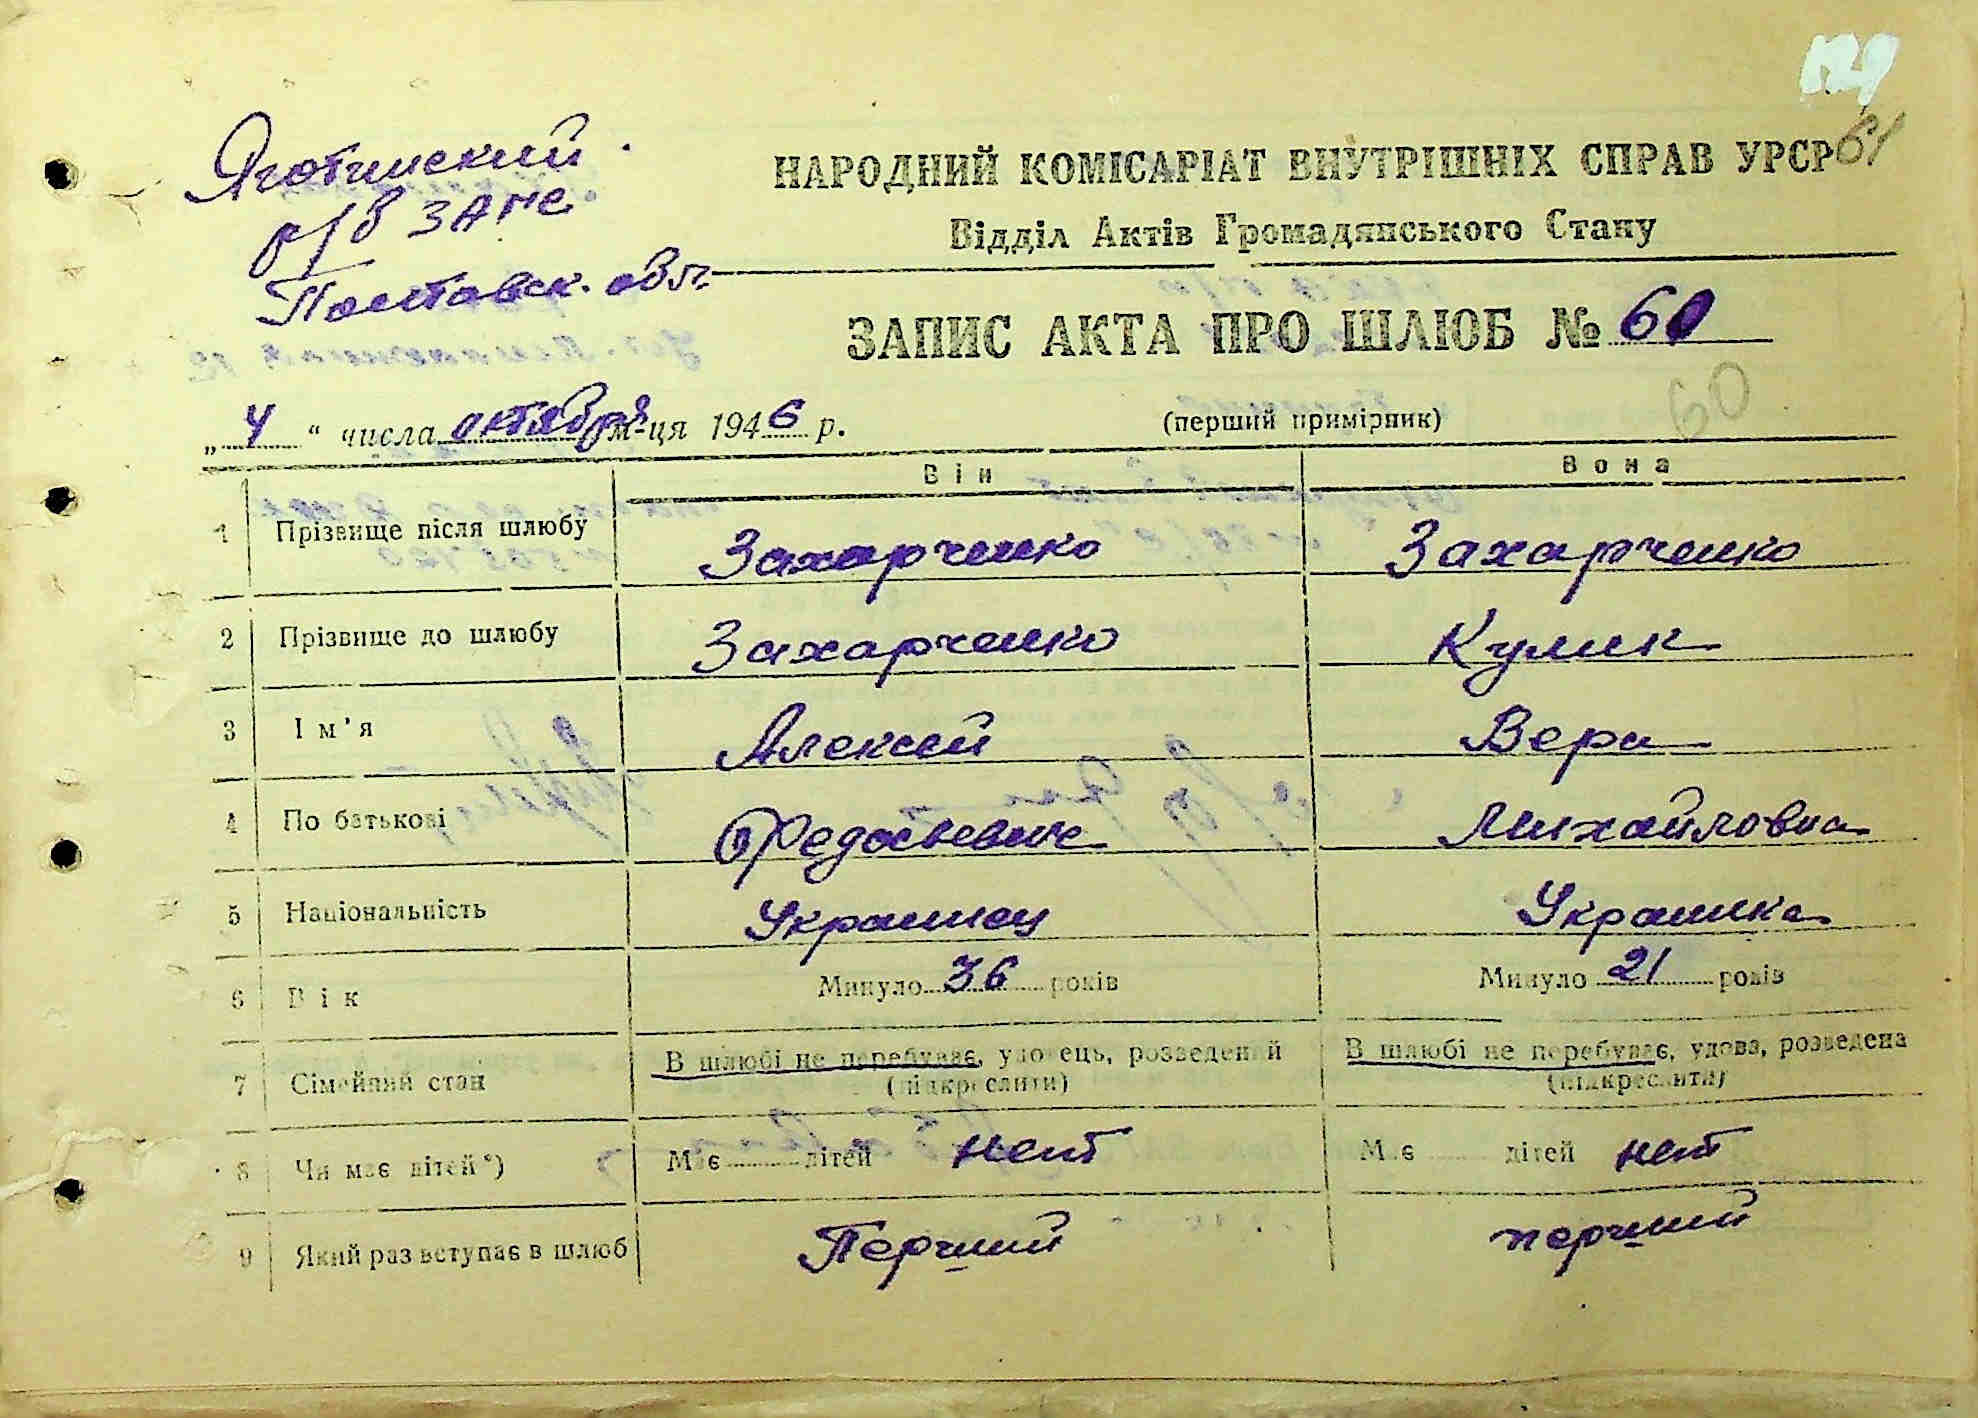 129
61
Яготинский
р/б ЗАГС
Полтавск. обл.
НАРОДНИЙ КОМІСАРІАТ ВНУТРІШНІХ СПРАВ УРСР
Відділ Актів Громадянського Стану
ЗАПИС АКТА ПРО ШЛЮБ № 60
60
„ 4 “ числа октября м-ця 1946 р. (перший примірник)
Він Вона
1 Прізвище після шлюбу Захарченко Захарченко
2 Прізвище до шлюбу Захарченко Кулик
3 Ім’я Алексей Вера
4 По батькові Федосьевич Михайловна
5 Національність Украинец Украинка
6 Вік Минуло 36 років Минуло 21 років
7 Сімейний стан В шлюбі не перебуває, удовець, розведений В шлюбі не перебуває, удова, розведена
(підкреслити) (підкреслити)
8 Чи має дітей*) Має дітей нет Має дітей нет
9 Який раз вступає в шлюб Перший перший